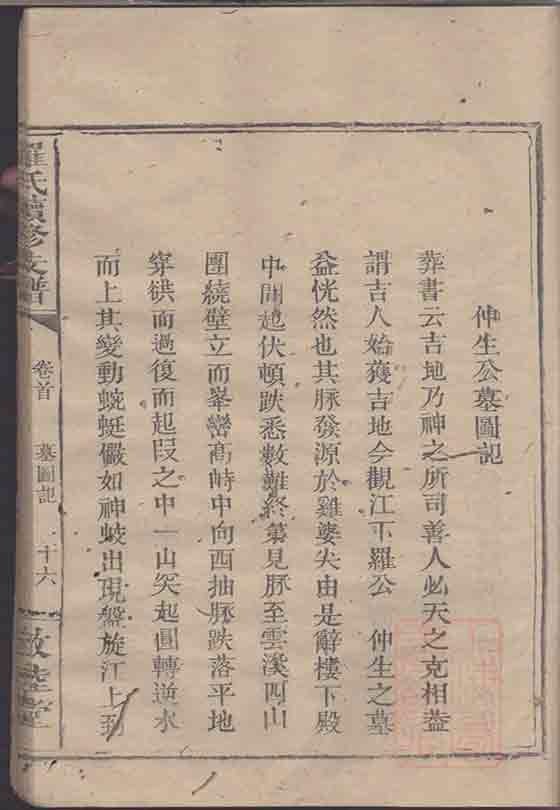 仲生公墓圖記
葬書云吉地乃神之所司善人必天之克相葢
謂吉人始獲吉地今觀江下羅公　仲生之墓
益恍然也其脉發源於雞婆尖由是辭樓下殿
中間起伏頓跌悉數難終第見脉至雲溪四山
團繞壁立而峯巒高峙中向西抽脉跌落平地
穿峽而過復而起段之中一山突起圓轉逆水
而上其變動蜿蜒儼如神蛟出現盤旋江上到
羅氏續修支譜
卷首
墓圖記
十六
敦睦堂